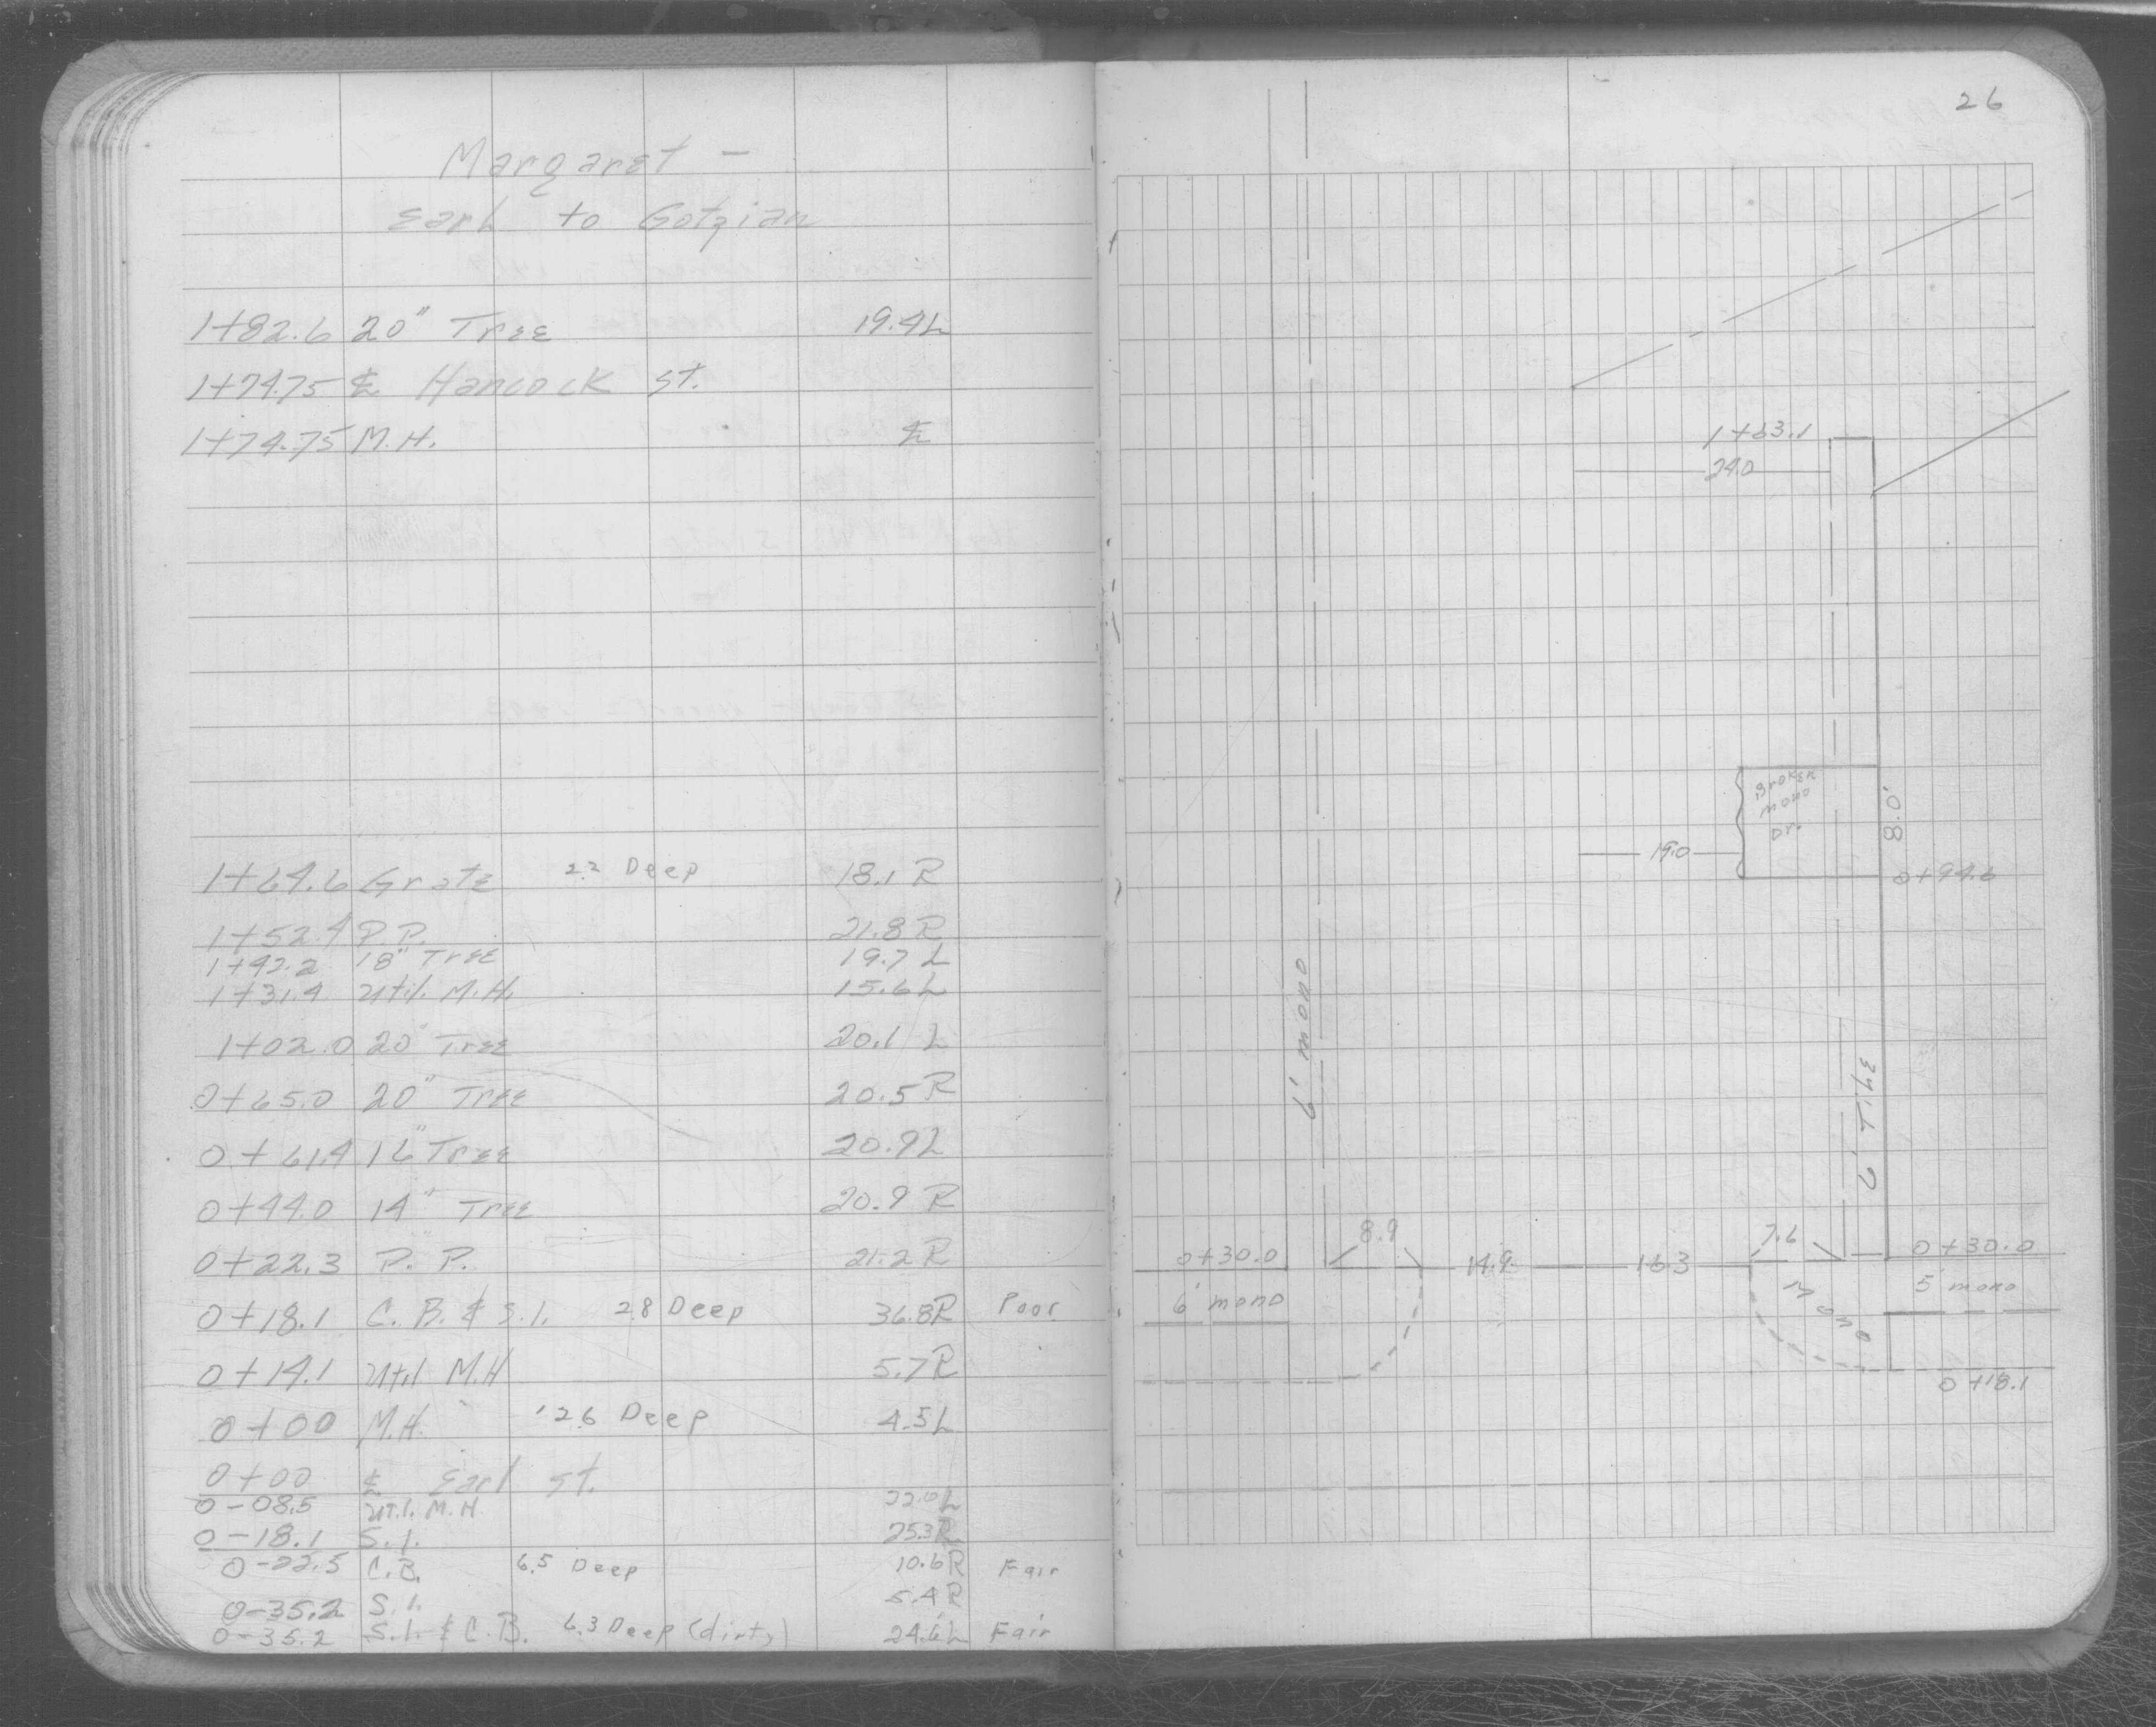 Margaret -
Earl to Gotzian
1+82.6 20" Tree 19.4L
1+74.75 ℄ Hancock st.
1+74.75 M.H. ℄
1+64.6 Grate 2.2 Deep 18.1 R
1+52.4 P.P. 21.8 R
1+42.2 18" Tree 19.7 L
1+31.4 Util. M.H. 15.6 L
1+02.0 20" Tree 20.1 L
0+65.0 20" Tree 20.5 R
0+61.4 16" Tree 20.9 L
0+44.0 14" Tree 20.9 R
0+22.3 P.P. 21.2 R
0+18.1 C.B. & S.I. 2.8 Deep 36.8R Poor
0+14.1 Util M.H 5.7 R
0+00 M.H. 12.6 Deep 4.5L
0+00 ℄ Earl st.
0-08.5 Util. M.H 22.0L
0-18.1 S.I. 25.3R
0-22.5 C.B. 6.5 Deep 10.6R Fair
0-35.2 S.I. 5.4 R
0-35.2 S.I. & C.B. 6.3 Deep (dirty) 24.6L Fair
26
1+63.1
24.0
Broken
mono
Dr.
8.0'
19.0
0+94.6
6' mono
0+30.0
8.9
14.9
16.3
7.6
0+30.0
6' mono
mono
5' mono
0+18.1